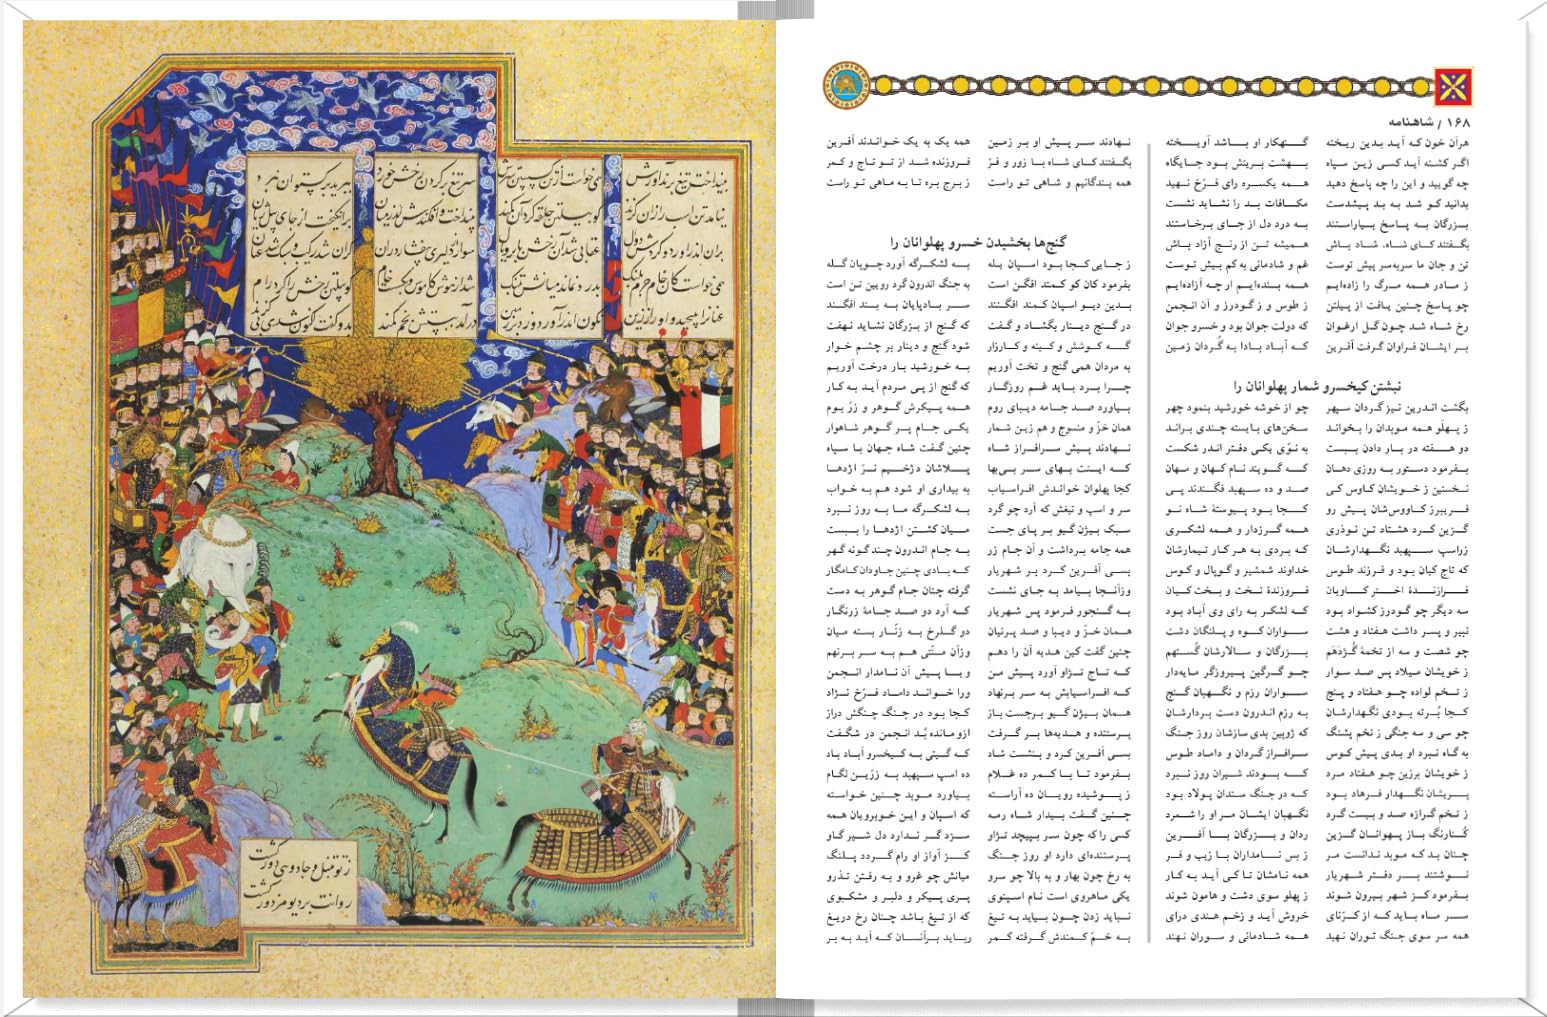 ۱۶۸ / شاهنامه
هرآن خون که آید بدین ریخته گنهکار او باشد آویخته
اگر کشته آید کسی زین سپاه بهشت برینش بود جایگاه
چه گویید و این را چه پاسخ دهید همه یکسره رای فرّخ نهید
بدانید کو شد به بد پیشدست مکافات بد را نشاید نشست
بزرگان به پاسخ بیاراستند به درد دل از جای برخاستند
بگفتند کای شاه، شاد باش همیشه تن از رنج آزاد باش
تن و جان ما سربه‌سر پیش توست غم و شادمانی به کم بیش توست
ز مادر همه مرگ را زاده‌ایم همه بنده‌ایم ارچه آزاده‌ایم
چو پاسخ چنین یافت از پیلتن ز طوس و ز گودرز و آن انجمن
رخ شاه شد چون گل ارغوان که دولت جوان بود و خسرو جوان
بر ایشان فراوان گرفت آفرین که آباد بادا به گُردان زمین
نبشتن کیخسرو شمار پهلوانان را
بگشت اندرین نیز گردان سپهر چو از خوشه خورشید بنمود چهر
ز پهلَو همه موبدان را بخواند سخن‌های بایسته چندی براند
دو هفته در بار دادن ببست به نوّی یکی دفتر اندر شکست
بفرمود دستور به روزی دهان که گویند نام کهان و مهان
نخستین ز خویشان کاوس کی صد و ده سپهبد فگندند پی
فریبرز کاووس‌شان پیش رو کجا بود پیوستهٔ شاه نو
گزین کرد هشتاد تن نوذری همه گرزدار و همه لشکری
زراسپ سپهبد نگهدارشان که بردی به هر کار تیمارشان
که تاج کیان بود و فرزند طوس خداوند شمشیر و گوپال و کوس
سه دیگر چو گودرز کشواد بود که لشکر به رای وی آباد بود
نبیر و پسر داشت هفتاد و هشت سواران کوه و پلنگان دشت
فرازندهٔ اختر کاویان فروزندهٔ تخت و بخت کیان
چو شصت و سه از تخمهٔ گژدهم بزرگان و سالارشان گُستهم
ز خویشان میلاد پس صد سوار چو گرگین پیروزگر مایه‌دار
ز تخم لواده چو هفتاد و پنج سواران رزم و نگهبان گنج
کجا بُرته بودی نگهدارشان به رزم اندرون دست بردارشان
چو سی و سه جنگی ز تخم پشنگ که ژوپین بدی سازشان روز جنگ
به گاه نبرد او بدی پیش کوس سرافراز گردان و داماد طوس
ز خویشان برزین چو هفتاد مرد که بودند شیران روز نبرد
پریشان نگهدار فرهاد بود که در جنگ سندان پولاد بود
ز تخم گرازه صد و بیست گرد نگهبان ایشان مر او را شمرد
کُنارنگ باز پهلوانان گزین ردان و بزرگان با آفرین
چنان بد که موبد ندانست مر ز بس نامداران با زیب و فر
نوشتند بر دفتر شهریار همه نامشان تا کی آید به کار
بفرمود کز شهر بیرون شوند ز پهلو سوی دشت و هامون شوند
سر ماه باید که از کرّنای خروش آید و زخم هندی درای
همه سر سوی جنگ توران نهید همه شادمانی و سوران نهند
نهادند سر پیش او بر زمین همه یک به یک خواندند آفرین
بگفتند کای شاه با زور و فرّ فروزنده شد از تو تاج و کمر
همه بندگانیم و شاهی تو راست ز برج بره تا به ماهی تو راست
گنج‌ها بخشیدن خسرو پهلوانان را
ز جایی کجا بود اسپان یله به لشکرگه آورد چوپان گله
بفرمود کان کو کمند افگن است به جنگ اندرون گرد رویین تن است
بدین دیو اسپان کمند افگنند سر بادپایان به بند افگنند
در گنج دینار بگشاد و گفت که گنج از بزرگان نشاید نهفت
گه کوشش و کینه و کارزار شود گنج و دینار بر چشم خوار
به مردان همی گنج و تخت آوریم به خورشید بار درخت آوریم
چرا برد باید غم روزگار که گنج از پی مردم آید به کار
بیاورد صد جامه دیبای روم همه پیکرش گوهر و زرّ بوم
همان خزّ و منسوج و هم زین شمار یکی جام پر گوهر شاهوار
نهادند پیش سرافراز شاه چنین گفت شاه جهان با سپاه
که اینت بهای سر بی‌بها پلاشان دژخیم نر اژدها
کجا پهلوان خواندش افراسیاب به بیداری او شود هم به خواب
سر و اسپ و تیغش که آرد چو گرد به لشکرگه ما به روز نبرد
سبک بیژن گیو بر پای جست میان کشتن اژدها را ببست
همه جامه برداشت و آن جام زر به جام اندرون چند گونه گهر
بسی آفرین کرد بر شهریار که بادی چنین جاودان کامگار
وزآنجا بیامد به جای نشست گرفته چنان جام گوهر به دست
به گنجور فرمود پس شهریار که آرد دو صد جامهٔ زرنگار
همان خزّ و دیبا و صد پرنیان دو گلرخ به زنّار بسته میان
چنین گفت کین هدیه آن را دهم وزآن منّتی هم به سر برنهم
که تاج تژاو آورد پیش من و یا پیش آن نامدار انجمن
که افراسیابش به سر برنهاد ورا خواند داماد فرّخ نژاد
همان بیژن گیو برجست باز کجا بود در جنگ چنگش دراز
پرستنده و هدیه‌ها بر گرفت ازو مانده بُد انجمن در شگفت
بسی آفرین کرد و بنشست شاد که گیتی به کیخسرو آباد باد
بفرمود تا با کمر ده غلام ده اسپ سپهبد به زرّین لگام
ز پوشیده رویان ده آراسته بیاورد موبد چنین خواسته
چنین گفت بیدار شاه رمه که اسپان و این خوبرویان همه
کسی را که چون سر بپیچد تژاو سزد گر ندارد دل شیر گاو
پرستنده‌ای دارد او روز جنگ کز آواز او رام گردد پلنگ
به رخ چون بهار و به بالا چو سرو میانش چو غرو و به رفتن تذرو
یکی ماهروی است نام اسپنوی پری پیکر و دلبر و مشکبوی
نباید زدن چون بیابد به تیغ که از تیغ باشد چنان رخ دریغ
به خمّ کمندش گرفته کمر رباید برآنسان که آید به بر